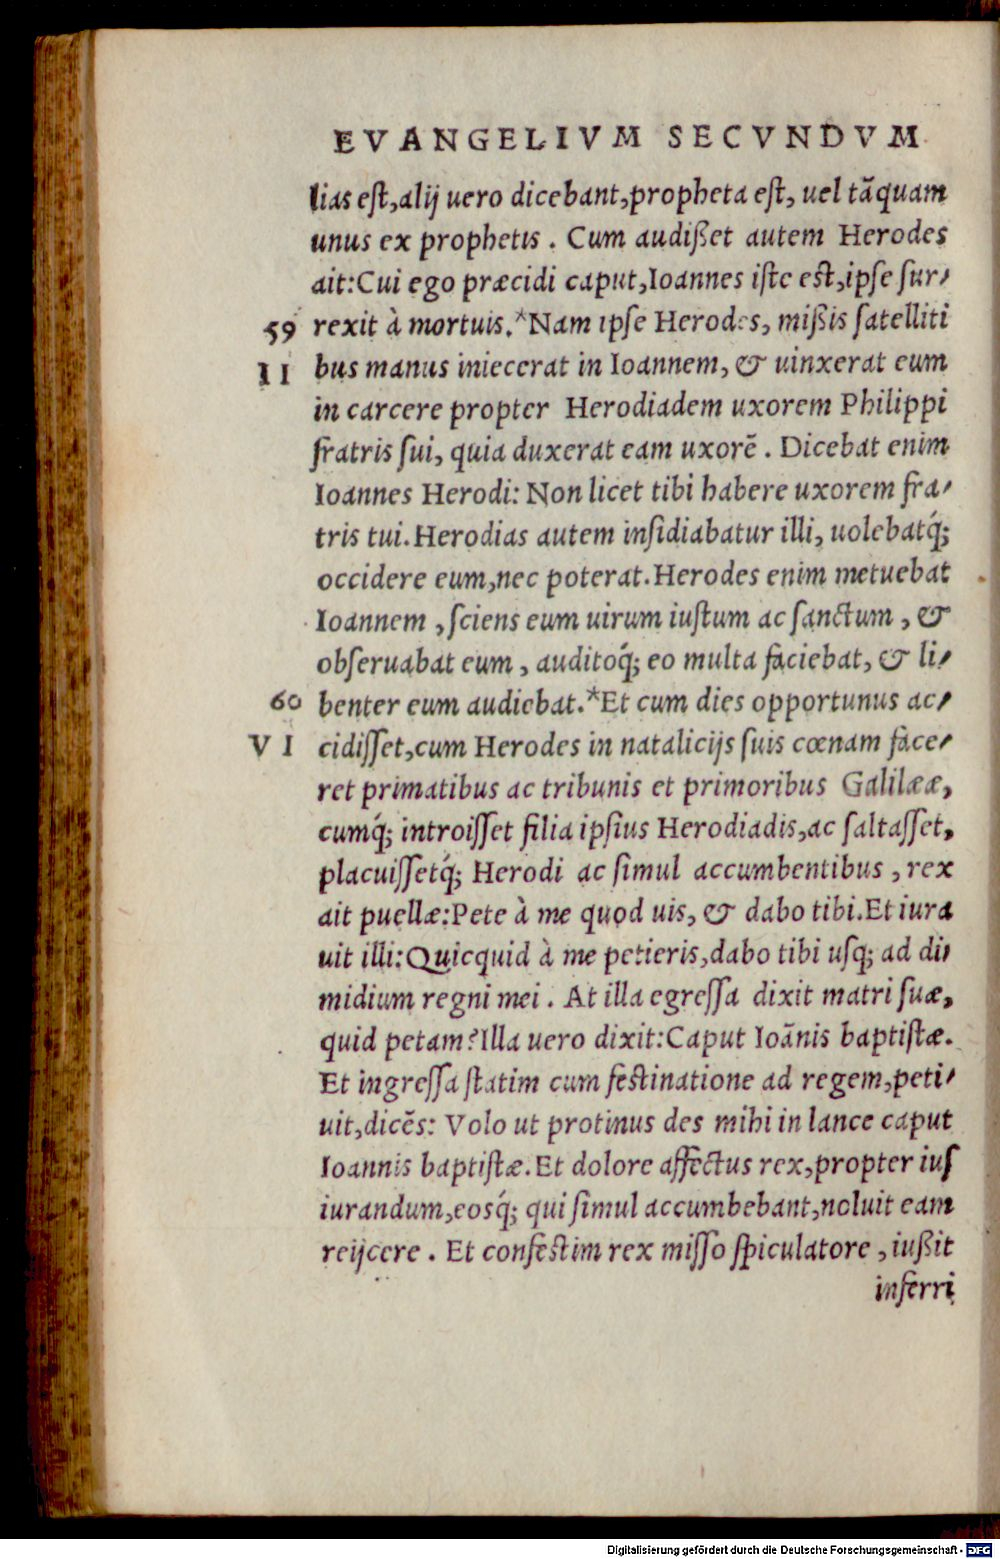 EVANGELIVM SECVNDVM
lias eſt,alij uero dicebant,propheta eſt, uel tãquam
unus ex prophetis . Cum audißet autem Herodes
ait:Cui ego præcidi caput,Ioannes iſte eſt,ipſe ſur,
59 rexit à mortuis.*Nam ipſe Herodes, mißis ſatelliti
II bus manus iniecerat in Ioannem, & uinxerat eum
in carcere propter Herodiadem uxorem Philippi
fratris ſui, quia duxerat eam uxorẽ . Dicebat enim
Ioannes Herodi: Non licet tibi habere uxorem fra,
tris tui.Herodias autem inſidiabatur illi, uolebatq́;
occidere eum,nec poterat.Herodes enim metuebat
Ioannem ,ſciens eum uirum iuſtum ac ſanctum , &
obſeruabat eum , auditoq́; eo multa faciebat, & li,
60 benter eum audiebat.*Et cum dies opportunus ac,
VI cidiſſet,cum Herodes in natalicijs ſuis cœnam face,
ret primatibus ac tribunis et primoribus Galilææ,
cumq́; introiſſet filia ipſius Herodiadis,ac ſaltaſſet,
placuiſſetq́; Herodi ac ſimul accumbentibus , rex
ait puellæ:Pete à me quod uis, & dabo tibi.Et iura
uit illi:Quicquid à me petieris,dabo tibi uſq; ad di,
midium regni mei . At illa egreſſa dixit matri ſuæ,
quid petam?Illa uero dixit:Caput Ioãnis baptiſtæ.
Et ingreſſa ſtatim cum feſtinatione ad regem,peti,
uit,dicẽs: Volo ut protinus des mihi in lance caput
Ioannis baptiſtæ.Et dolore affectus rex,propter iuſ
iurandum,eosq́; qui ſimul accumbebant,noluit eam
reijcere . Et confeſtim rex miſſo ſpiculatore , iußit
inferri
Digitalisierung gefördert durch die Deutsche Forschungsgemeinschaft - DFG